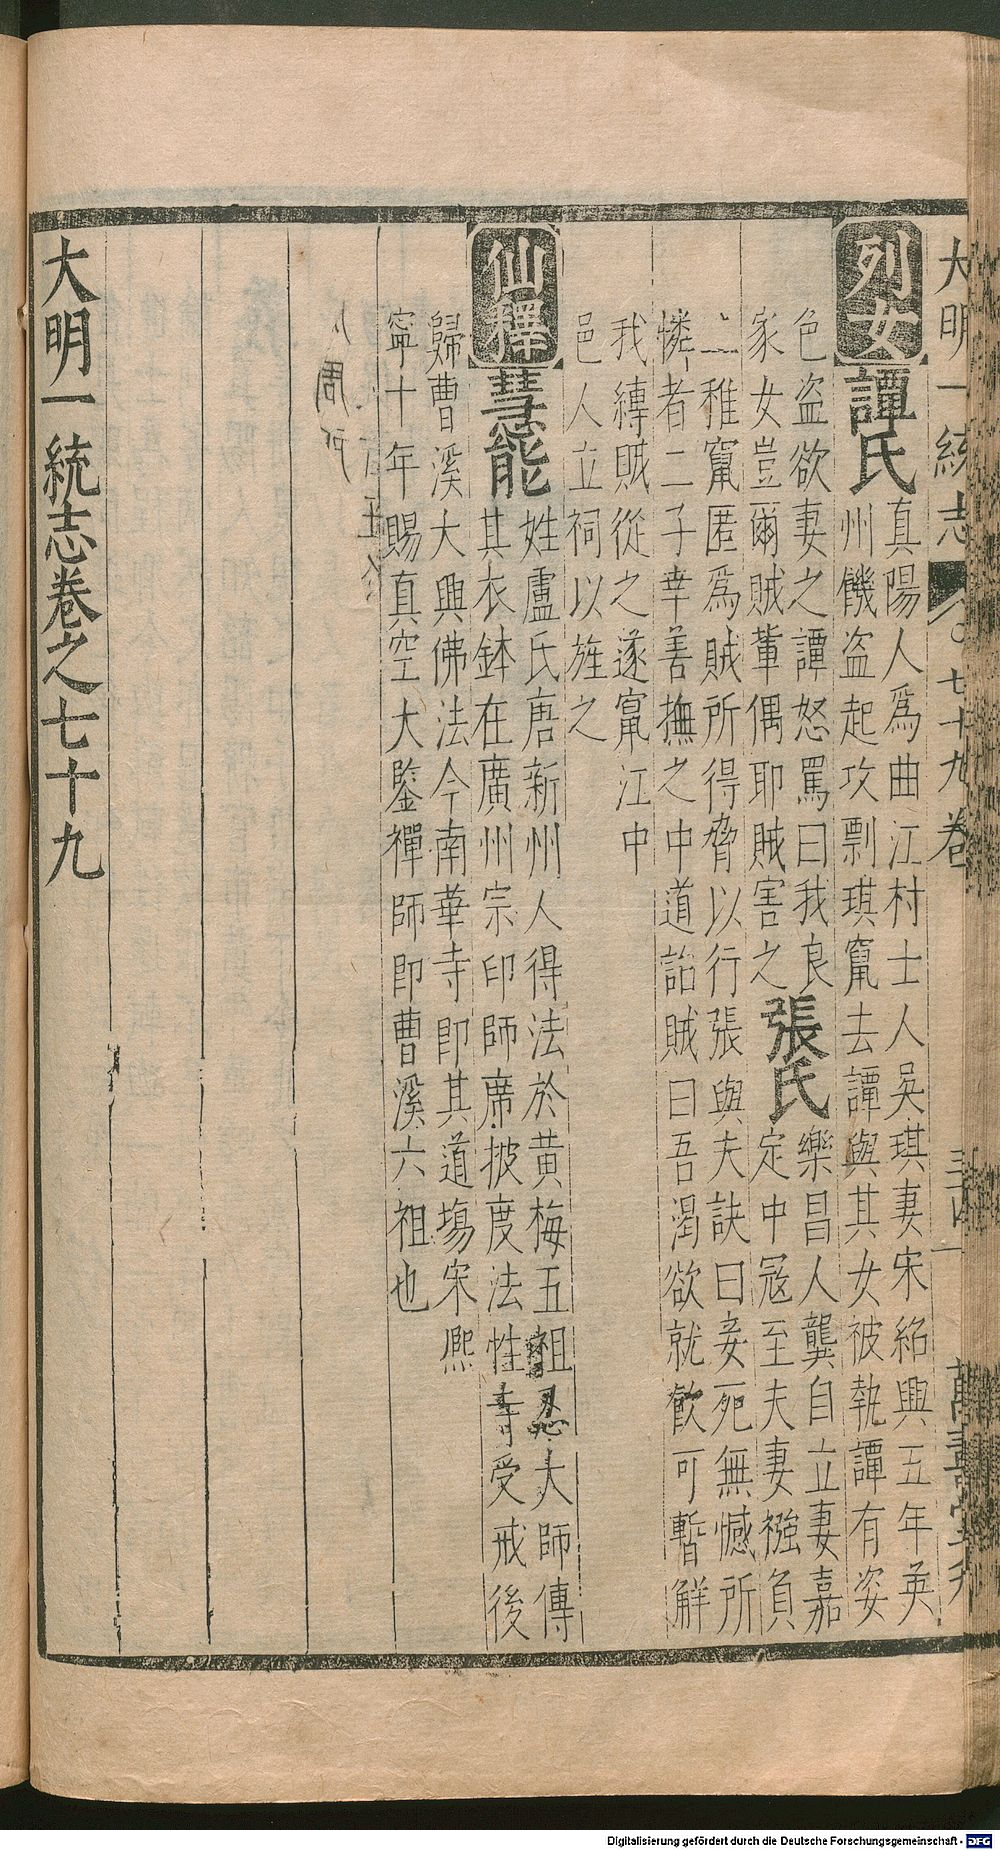 大明一統志 七十九卷 三十四 萬壽堂刊
列女 譚氏
真陽人爲曲江村士人吳琪妻宋紹興五年英
州饑盗起攻剽琪竄去譚與其女被執譚有姿
色盗欲妻之譚怒罵曰我良
家女豈爾賊軰偶耶賊害之
張氏
樂昌人龔自立妻嘉
定中冦至夫妻襁負
二稚竄匿爲賊所得脅以行張與夫訣曰妾死無憾所
憐者二子幸善撫之中道詒賊曰吾渴欲就飮可暫解
我縳賊從之遂竄江中
邑人立祠以旌之
仙釋 慧能
姓盧氏唐新州人得法於黄梅五祖忍大師傳
其衣鉢在廣州宗印師席披度法性寺受戒後
歸曹溪大興佛法今南華寺即其道塲宋熈
寧十年賜真空大鑒禪師即曹溪六祖也
大明一統志卷之七十九
Digitalisierung gefördert durch die Deutsche Forschungsgemeinschaft - DFG